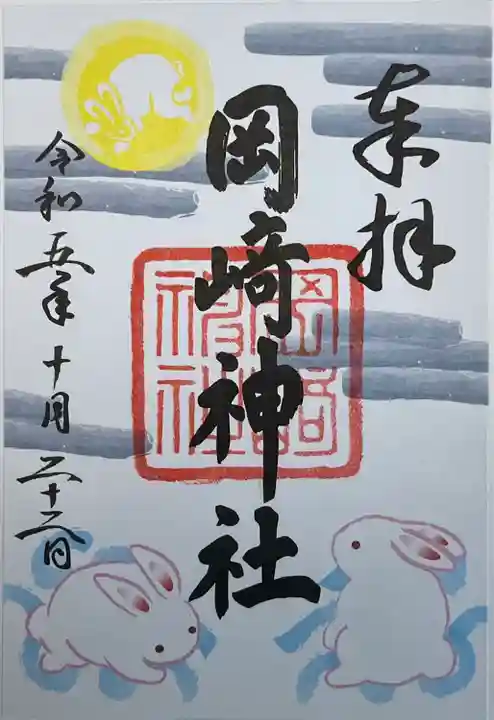 奉拝
岡﨑神社
岡崎神社
令和五年十月二十二日